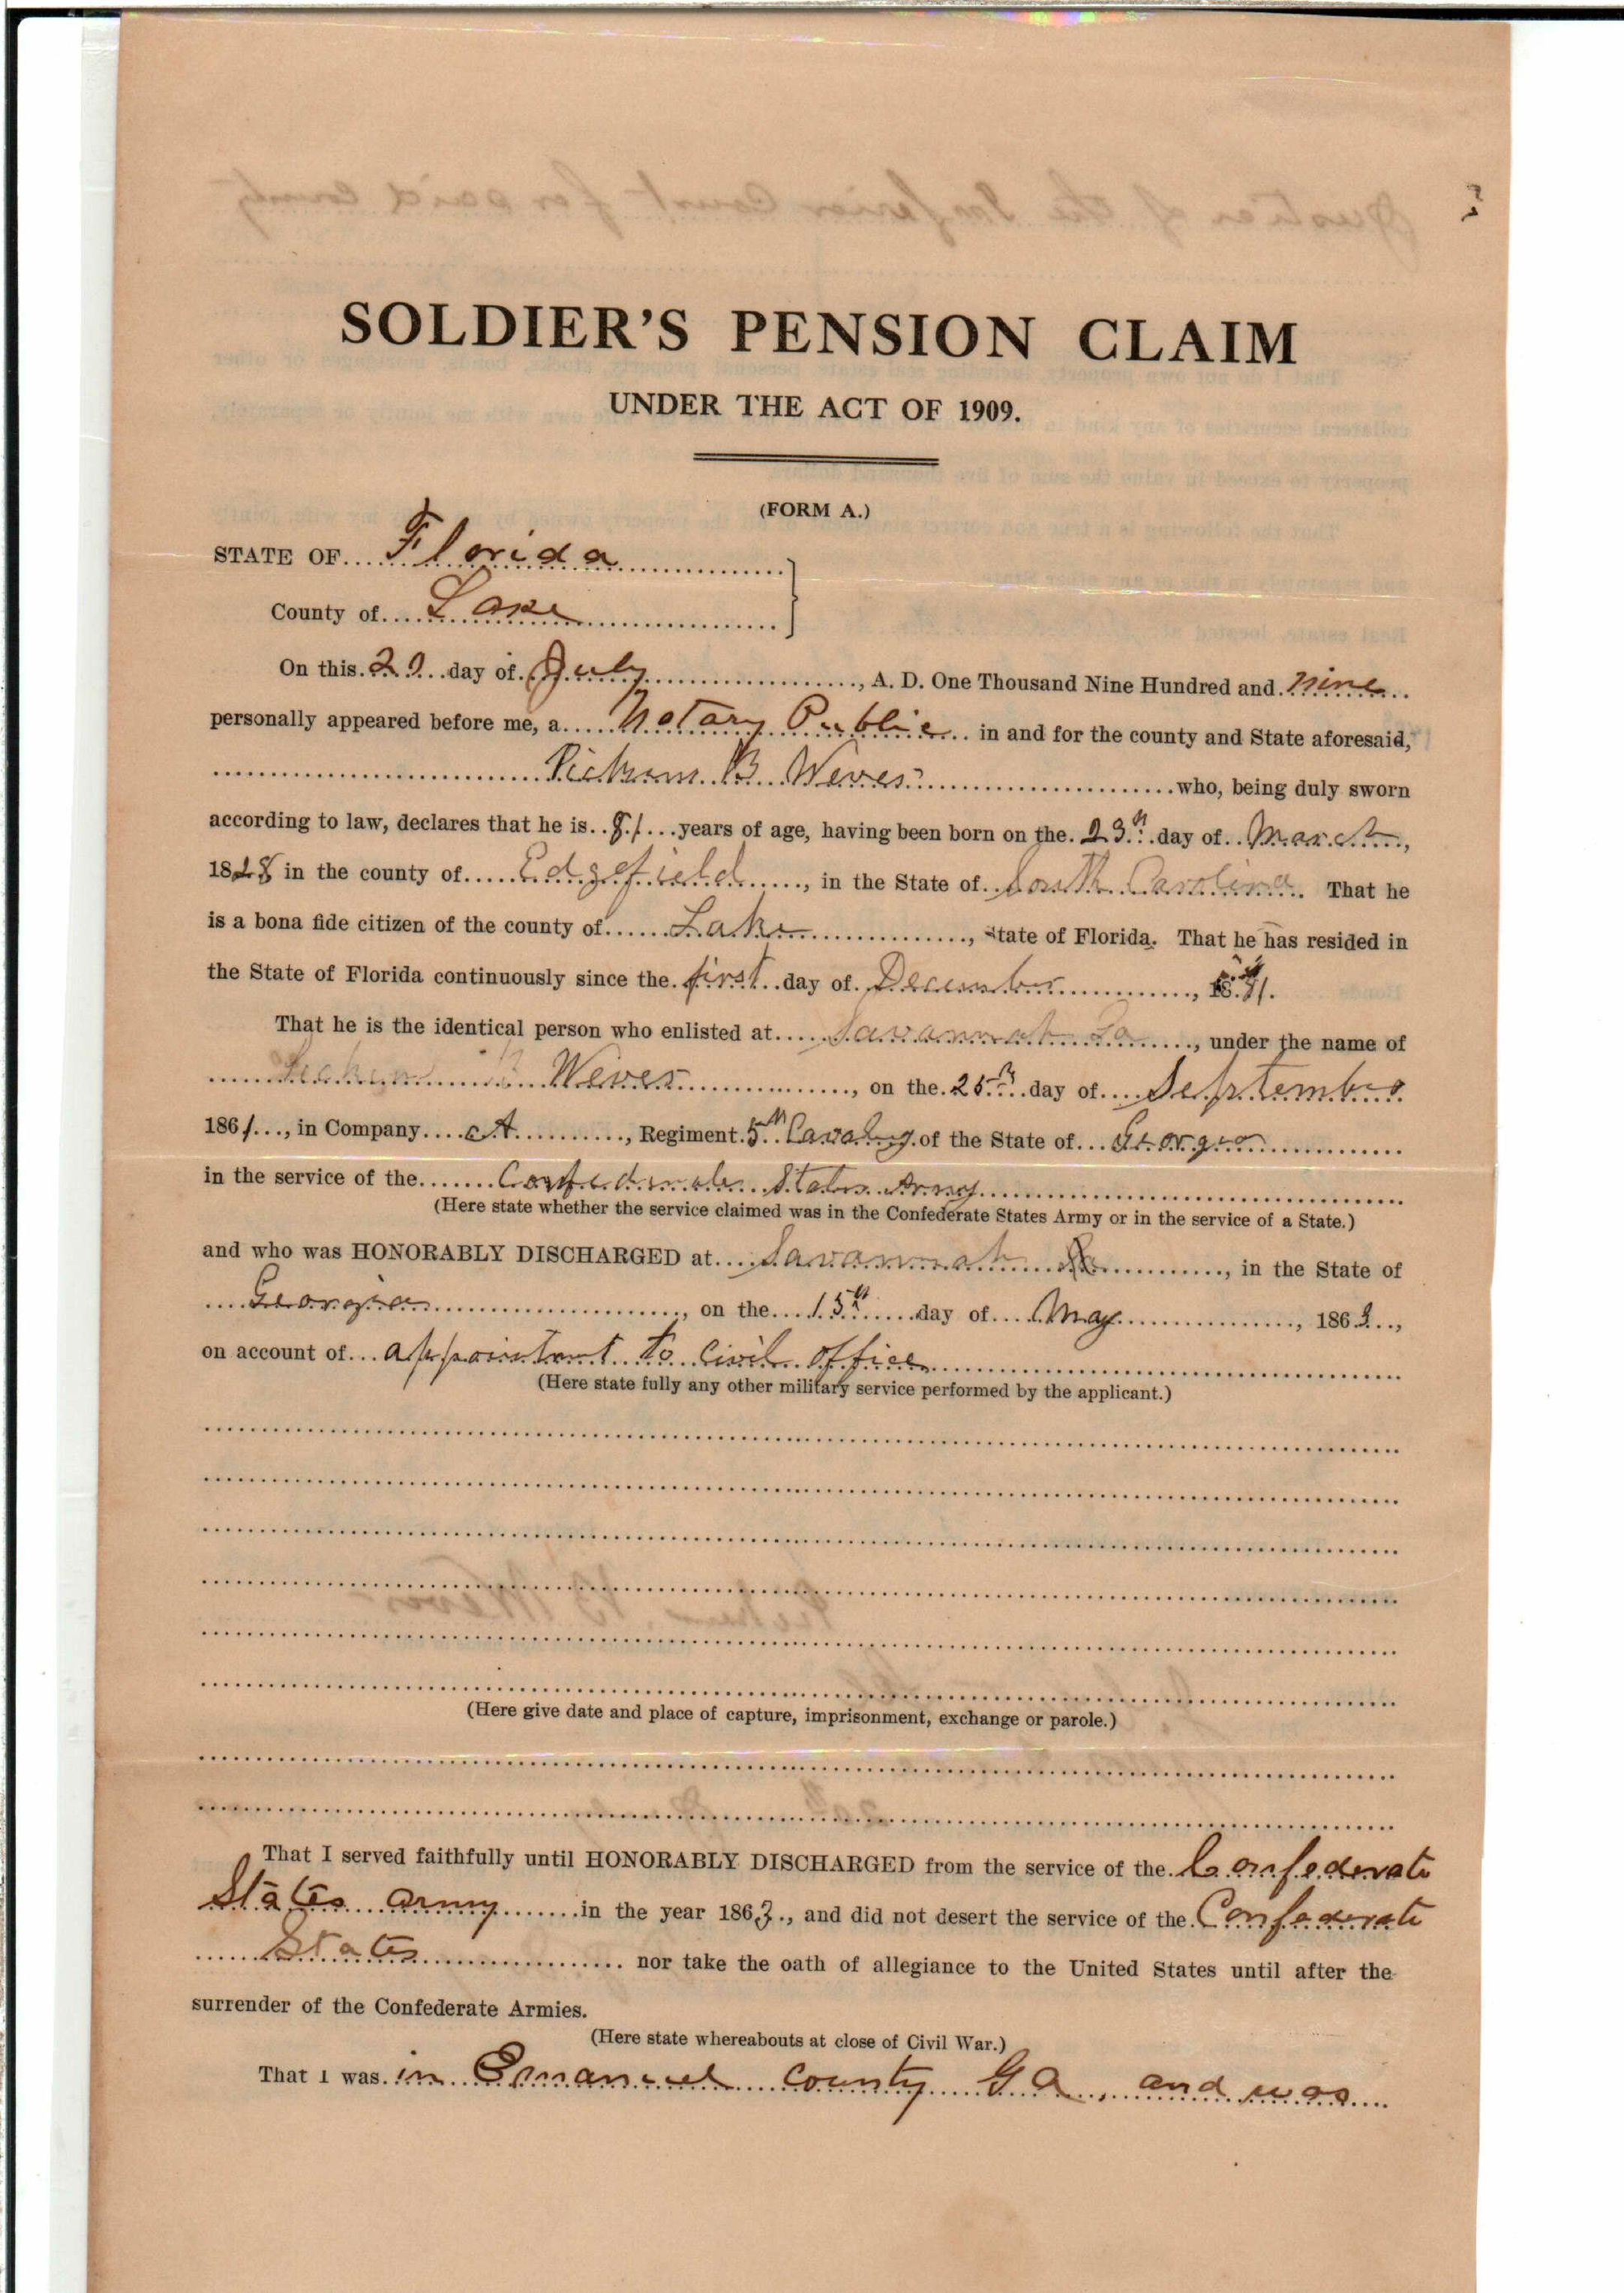 SOLDIER'S PENSION CLAIM
UNDER THE ACT OF 1909.
(FORM A.)
STATE OF Florida
County of Lake
On this 20 day of July, A. D. One Thousand Nine Hundred and nine
personally appeared before me, a Notary Public in and for the county and State aforesaid,
B Weves who, being duly sworn
according to law, declares that he is 81 years of age, having been born on the 23th day of March,
1828 in the county of Edgefield, in the State of South Carolina. That he
is a bona fide citizen of the county of Lake, State of Florida. That he has resided in
the State of Florida continuously since the first day of December, 18
That he is the identical person who enlisted at Savannah Ga, under the name of
B Weves, on the 25th day of September
1861, in Company A, Regiment 5th Cavalry of the State of Georgia
in the service of the Confederate States Army
(Here state whether the service claimed was in the Confederate States Army or in the service of a State.)
and who was HONORABLY DISCHARGED at Savannah, in the State of
Georgia, on the 15th day of May, 1863,
on account of appointment to civil office
(Here state fully any other military service performed by the applicant.)
(Here give date and place of capture, imprisonment, exchange or parole.)
That I served faithfully until HONORABLY DISCHARGED from the service of the Confederate
States army in the year 1863, and did not desert the service of the Confederate
States nor take the oath of allegiance to the United States until after the
surrender of the Confederate Armies.
(Here state whereabouts at close of Civil War.)
That I was in Emanuel county Ga, and was